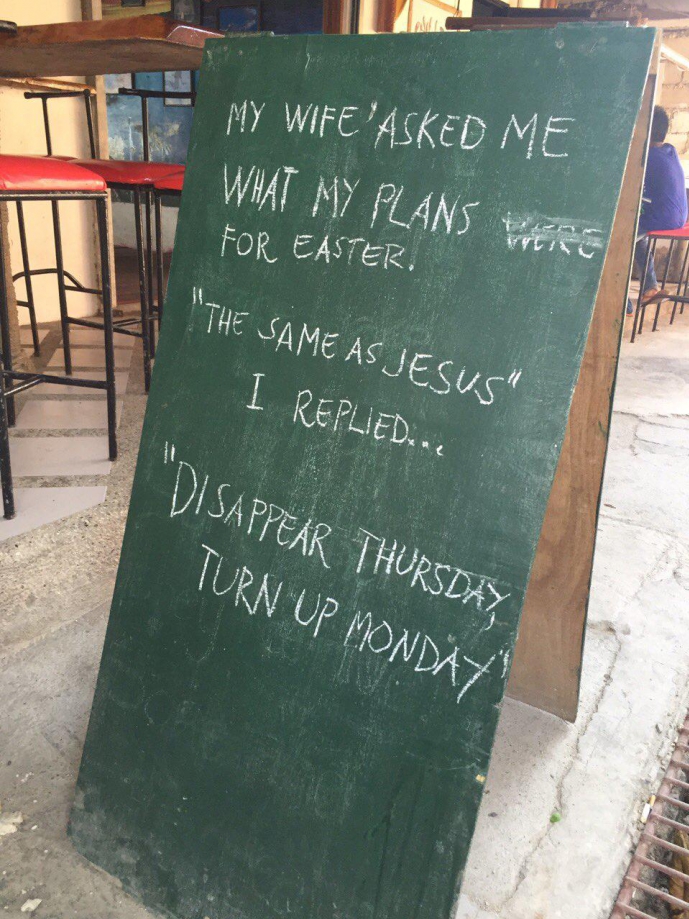 MY WIFE 'ASKED ME
WHAT MY PLANS WERE
FOR EASTER.
"THE SAME AS JESUS"
I REPLIED...
"DISAPPEAR THURSDAY,
TURN UP MONDAY"